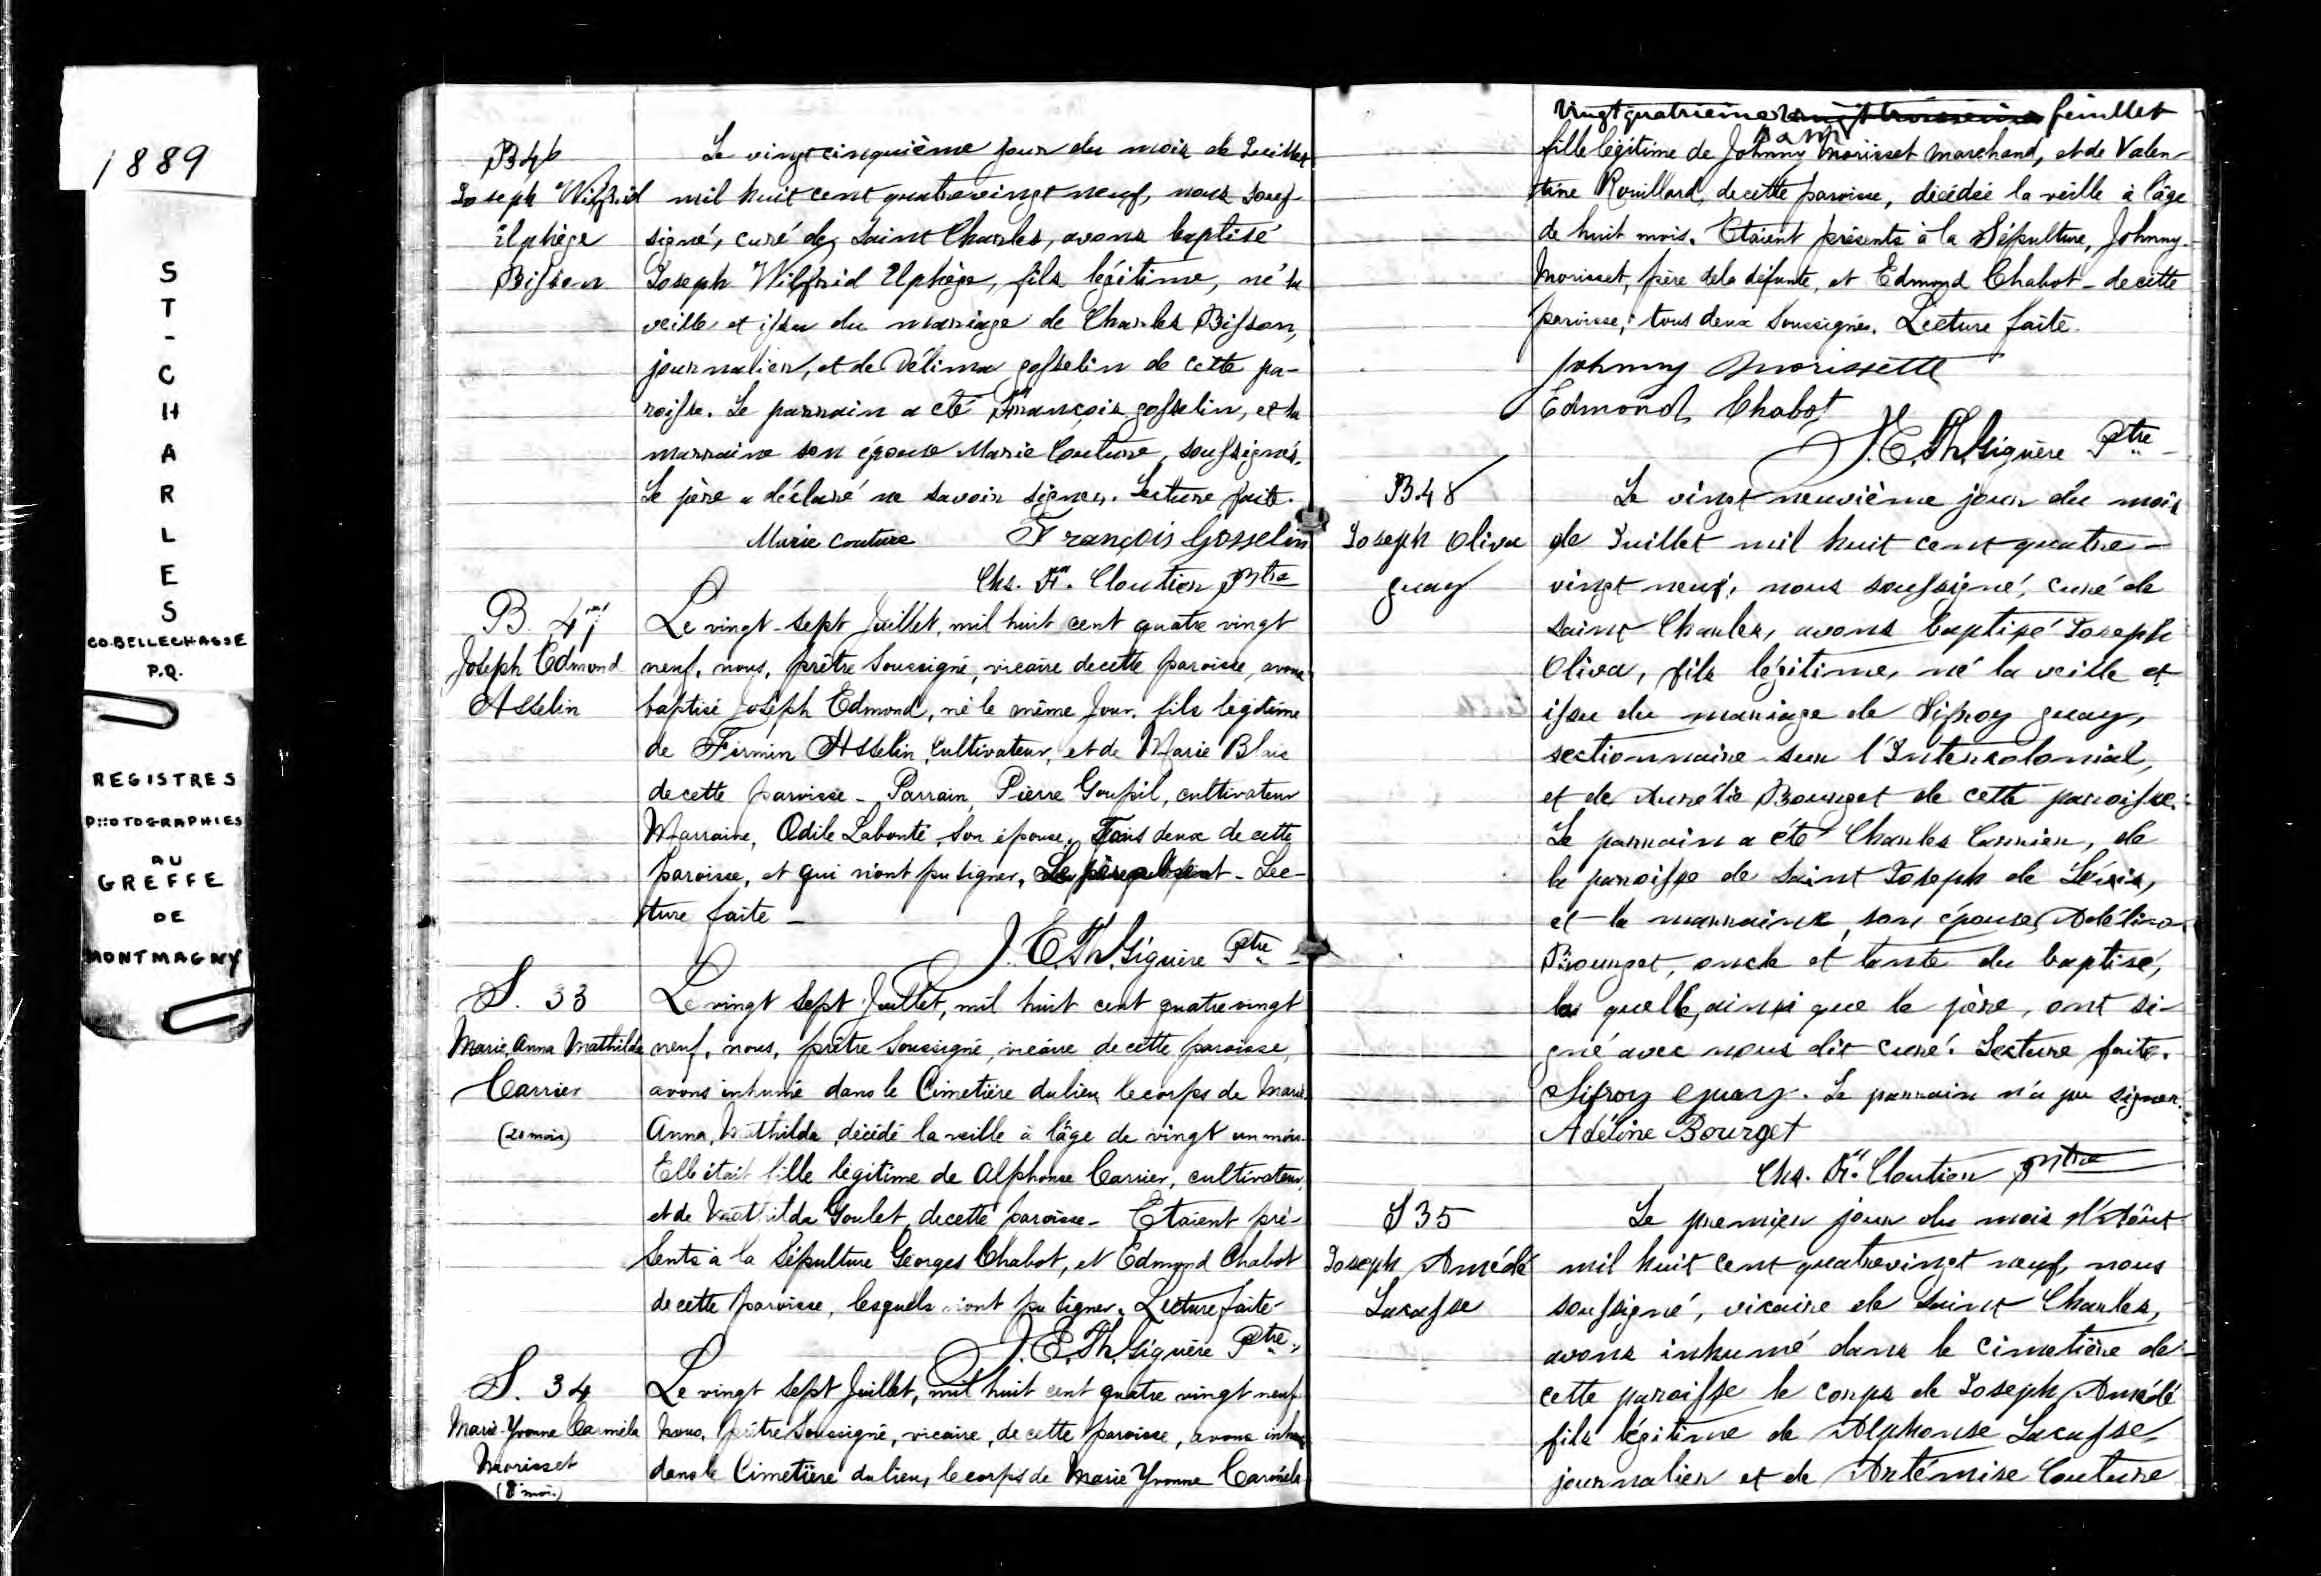 1889
ST-CHARLES
CO. BELLECHASSE
P.Q.
REGISTRES
PHOTOGRAPHIES
AU
GREFFE
DE
MONTMAGNY
B 46
Joseph Wilfrid
Elphège
Bisson
Le vingt cinquième jour du mois de Juillet
mil huit cent quatrevingt neuf, nous sous-
signé, curé de Saint Charles, avons baptisé
Joseph Wilfrid Elphège, fils légitime, né la
veille et issu du mariage de Charles Bisson,
journalier, et de Délima Gosselin de cette pa-
roisse. Le parrain a été François Gosselin, et la
marraine son épouse Marie Couture, soussignés.
Le père a déclaré ne savoir signer. Lecture faite.
Marie Couture François Gosselin
Chs. Fr. Cloutier Ptre
B. 47
Joseph Edmond
Asselin
Le vingt-sept Juillet, mil huit cent quatre vingt
neuf, nous, prêtre soussigné, vicaire de cette paroisse, avons
baptisé Joseph Edmond, né le même jour, fils légitime
de Firmin Asselin, cultivateur, et de Marie Blais
de cette paroisse - Parrain, Pierre Goupil, cultivateur
Marraine, Odile Labonté, son épouse, Tous deux de cette
paroisse, et qui n'ont pu signer. Le père absent - Lec-
ture faite -
J. E. Th. Giguère Ptre
S. 33
Marie Anna Mathilde
Carrier
(20 mois)
Le vingt sept Juillet, mil huit cent quatre vingt
neuf, nous, prêtre soussigné, vicaire de cette paroisse,
avons inhumé dans le Cimetière du lieu le corps de Marie
Anna, Mathilda, décédé la veille à l'âge de vingt un mois.
Elle était fille légitime de Alphonse Carrier, cultivateur,
et de Mathilda Goulet, de cette paroisse - Etaient pré-
sents à la Sépulture Georges Chabot, et Edmond Chabot
de cette paroisse, lesquels n'ont pu signer. Lecture faite -
J. E. Th. Giguère Ptre
S. 34
Marie-Yvonne Carméla
Morisset
(8 mois)
Le vingt sept Juillet, mil huit cent quatre vingt neuf
Nous, prêtre soussigné, vicaire, de cette paroisse, avons inhumé
dans le Cimetière du lieu, le corps de Marie Yvonne Carméla
Vingt quatrième vingt troisième feuillet
fille légitime de Johnny Morisset marchand, et de Valen-
tine Rouillard, de cette paroisse, décédée la veille à l'âge
de huit mois. Etaient présents à la Sépulture, Johnny
Morisset, père de la défunte, et Edmond Chabot - de cette
paroisse, tous deux soussignés. Lecture faite.
Johnny Morissette
Edmond Chabot
J. E. Th. Giguère Ptre
B 48
Joseph Oliva
Guay
Le vingt neuvième jour du mois
de Juillet mil huit cent quatre-
vingt neuf, nous soussigné, curé de
Saint Charles, avons baptisé Joseph
Oliva, fils légitime, né la veille et
issu du mariage de Sifroy Guay,
sectionnaire sur l'Intercolonial,
et de Aurélie Bourget de cette paroisse.
Le parrain a été Charles Carrier, de
la paroisse de Saint Joseph de Lévis,
et la marraine, son épouse, Adélina
Bourget, oncle et tante du baptisé,
la quelle, ainsi que le père, ont si-
gné avec nous dit curé. Lecture faite.
Sifroy Guay. Le parrain n'a pu signer.
Adéline Bourget
Chs. Fr. Cloutier Ptre
S 35
Joseph Amédé
Lacasse
Le premier jour du mois d'Août
mil huit cent quatrevingt neuf, nous
soussigné, vicaire de Saint Charles,
avons inhumé dans le cimetière de
cette paroisse le corps de Joseph Amédé
fils légitime de Alphonse Lacasse,
journalier et de Artémise Couture